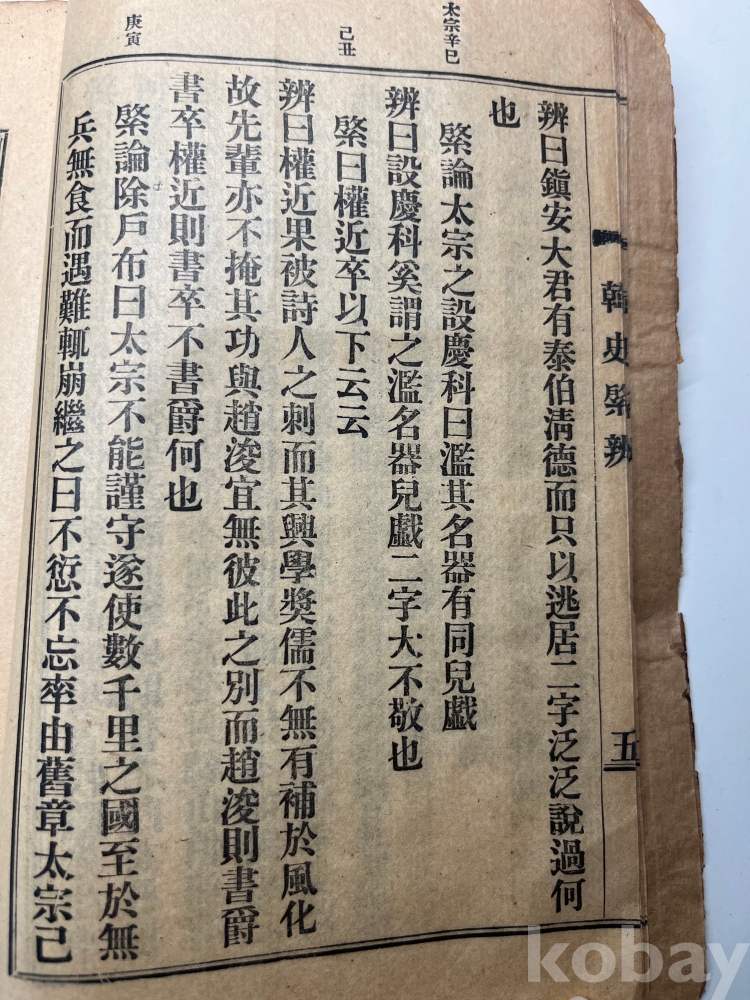 韓史綮辨
五
太宗辛巳
己丑
庚寅
辨曰鎭安大君有泰伯淸德而只以逃居二字泛泛說過何
也
綮論太宗之設慶科曰濫其名器有同兒戱
辨曰設慶科奚謂之濫名器兒戱二字大不敬也
綮曰權近卒以下云云
辨曰權近果被詩人之刺而其興學奬儒不無有補於風化
故先輩亦不掩其功與趙浚宜無彼此之別而趙浚則書爵
書卒權近則書卒不書爵何也
綮論除戶布曰太宗不能謹守遂使數千里之國至於無
兵無食而遇難輒崩繼之曰不愆不忘率由舊章太宗己
kobay